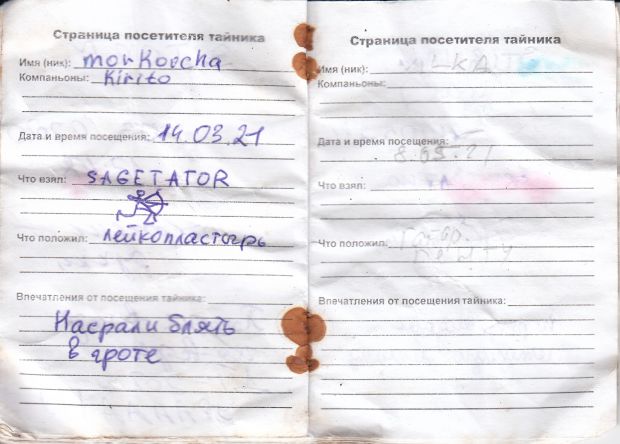 Страница посетителя тайника
Имя (ник): morkovcha
Компаньоны: Kirito
Дата и время посещения: 14.03.21
Что взял: SAGETATOR
Что положил: лейкопластырь
Впечатления от посещения тайника:
Насрали блять
в гроте
Страница посетителя тайника
Имя (ник):
Компаньоны:
Дата и время посещения:
Что взял:
Что положил:
Впечатления от посещения тайника: